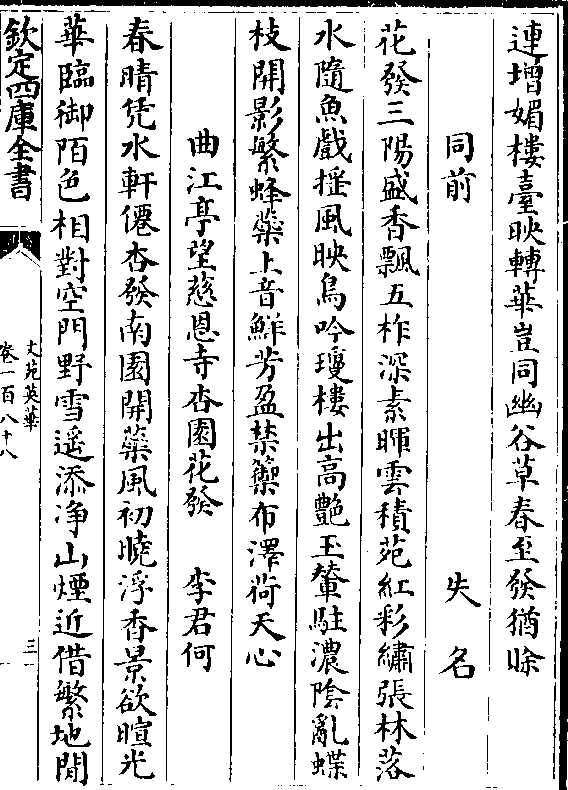 連増媚樓臺映轉華豈同幽谷草春至發猶賒
同前　失名
花發三陽盛香飄五柞深素暉雲積苑紅彩繡張林落
水隨魚戲揺風映鳥吟瓊樓出高艶玉輦駐濃陰亂蝶
枝開影繁蜂蘂上音鮮芳盈禁籞布澤荷天心
曲江亭望慈恩寺杏園花發　李君何
春晴凭水軒僊杏發南園開蘂風初曉浮香景欲暄光
華臨御陌色相對空門野雪遥添浄山煙近借繁地閒
欽定四庫全書
文苑英華
卷一百八十八
三